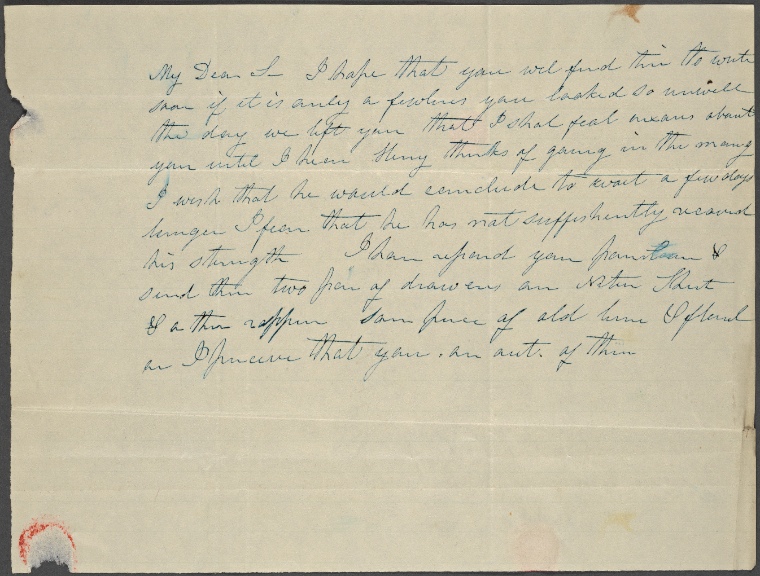 My Dear S— I hope that you wil find time to write
soon if it is only a few lines you looked so unwell
the day we left you that I shal feal anxous about
you until I hear Heny thinks of gowing in the mang
I wish that he would conclude to wait a few days
longer I fear that he has not suffishently recoved
his strength I have you &
send them two pair of drawers an Shirt
& a thin rapper som of old &
as I perceive that you . an out . of them